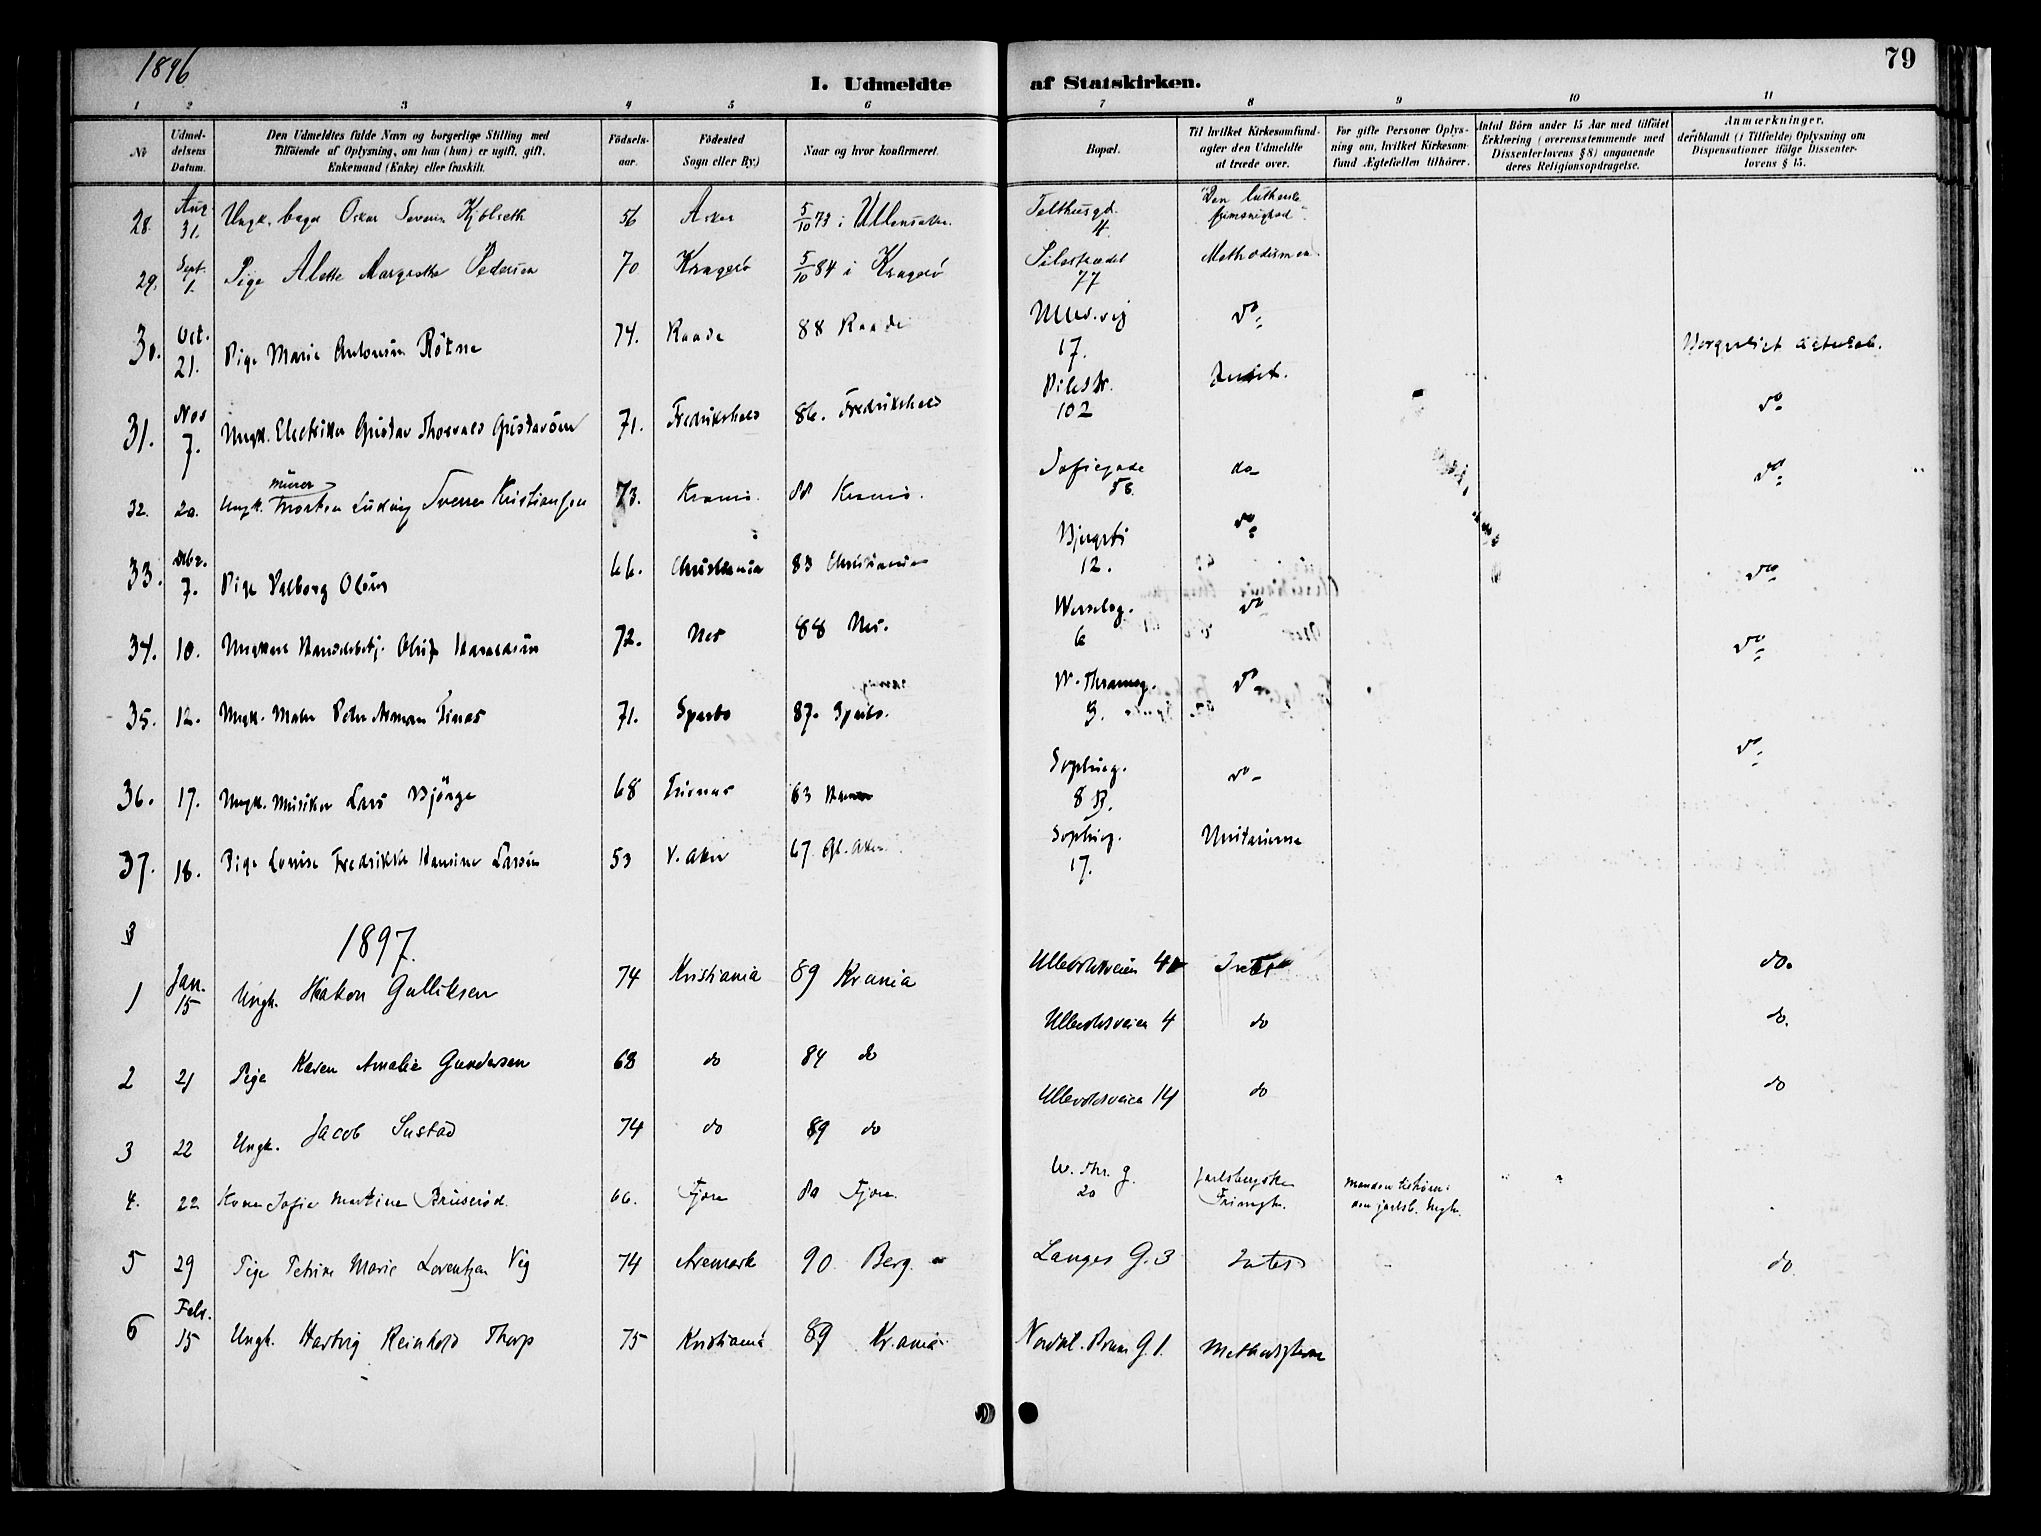 1896
79
I. Udmeldte af Statskirken.
1 2 3 4 5 6 7 8 9 10 11
No
Udmeldelsens Datum.
Den Udmeldtes fulde Navn og borgerlige Stilling med Tilføiende af Oplysning, om han (hun) er ugift, gift, Enkemand (Enke) eller fraskilt.
Fødselsaar.
Fødested Sogn eller By.)
Naar og hvor konfirmeret.
Bopæl.
Til hvilket Kirkesamfund agter den Udmeldte at træde over.
For gifte Personer Oplysning om, hvilket Kirkesamfund Ægtefællen tilhører.
Antal Børn under 15 Aar med tilføiet Erklæring (overensstemmende med Dissenterlovens § 8) angaaende deres Religionsopdragelse.
Anmærkninger, derblandt (i Tilfælde) Oplysning om Dispensationer ifølge Dissenterlovens § 15.
28. Aug 31. Ungk. bager Oskar Severin Kjølseth 56 Asker 5/10 73 i Ullensaker. Telthusgd. 4. Den lutherske frimenighed
29. Sept. 1. Pige Alette Margrethe Pedersen 70 Kragerö 5/10 84 i Kragerö Pilestrædet 77 Methodismen
30. Oct. 21. Pige Marie Antonsen Rötne 74. Raade 88 Raade Ullev.vej 17. do Borgerligt Ægteskab.
31. Nov 7. Ungk. Elektriker Gustav Thorvald Gustavsen 71. Fredrikshald 86. Fredrikshald Pilestr. 102 Intet. do
32. 20. Ungk. murer Morten Ludvig Sverre Kristiansen 73. Krania. 88 Krania. Sofiegade 58. do do
33. Dcbr. 7. Pige Valborg Olsen 66. Christiania 83 Christiania Bjergsti 12. do do
34. 10. Ungkarl Handelsbetj. Oluf Haraldsen 72. Nes 88 Nes. Wesselsg. 6 do do
35. 12. Ungk. Maler Peter Arman Finas 71. Sparbo 87. Sparbo. W. Thranesg. 9. do
36. 17. Ungk. Musiker Lars Björge 68 Furnes 83 Hamar Sophieg. 8 B. do do
37. 18. Pige Louise Fredrikke Hansine Larsen 53 V. Aker 67 Gl. Aker Sophieg. 17. Unitarierne
1897.
1 Jan. 15 Ungk. Haakon Gulliksen 74 Kristiania 89 Krania Ullevoldsveien 40 Intet do.
2 21 Pige Karen Amalie Gundersen 68 do 84 do Ullevoldsveien 4 do do.
3 22 Ungk. Jacob Sustad 74 do 89 do Ullevoldsveien 14 do do
4. 22 Kone Sofie Martine Bruserød. 66. Fjære 80 Fjære. W. Thr. g. 20 Jarlsbergske Frimgh. Manden tilhører den jarlsb. Mgh.
5 29 Pige Petrine Marie Lorentzen Vig 74 Aremark 90 Berg. Langes G. 3 Intet do
6 Febr. 15 Ungk. Hartvig Reinhold Thorp 75 Kristiania 89 Kr.ania Nordal. Bruns G. 1. Methodisterne